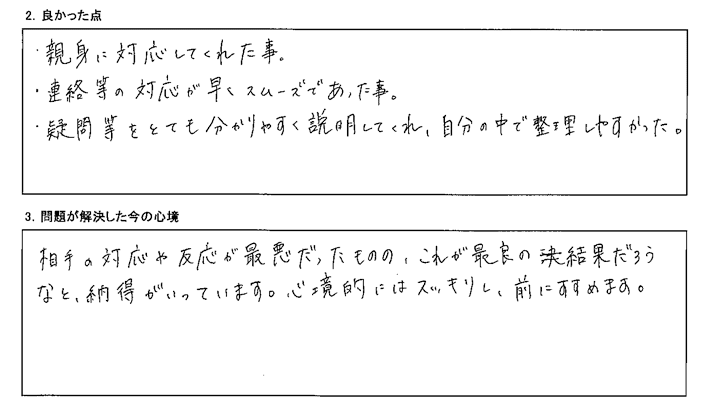 2．良かった点
・親身に対応してくれた事。
・連絡等の対応が早くスムーズであった事。
・疑問等をとても分かりやすく説明してくれ、自分の中で整理しやすかった。
3．問題が解決した今の心境
相手の対応や反応が最悪だったものの、これが最良の決結果だろう
なと、納得がいっています。心境的にはスッキリし、前にすすめます。